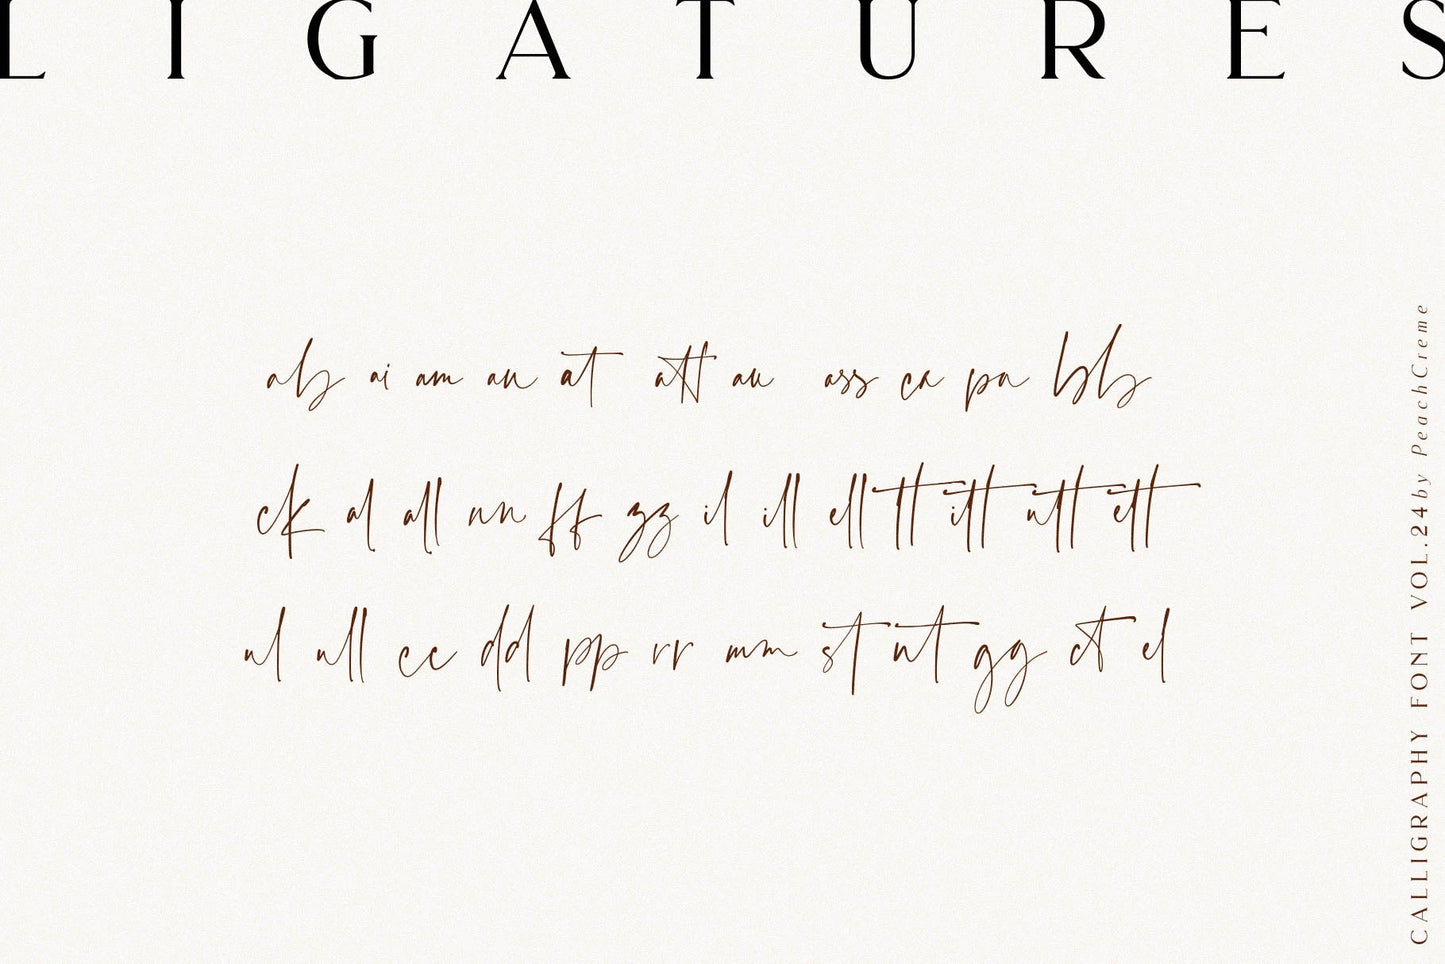 LIGATURES
ab ai am an at att au ass ca pa bb
ck al all nn ff zz il ill ell tt itt utt ett
ul ull cc dd pp rr mm st nt gg ct el
CALLIGRAPHY FONT VOL.24 by PeachCreme